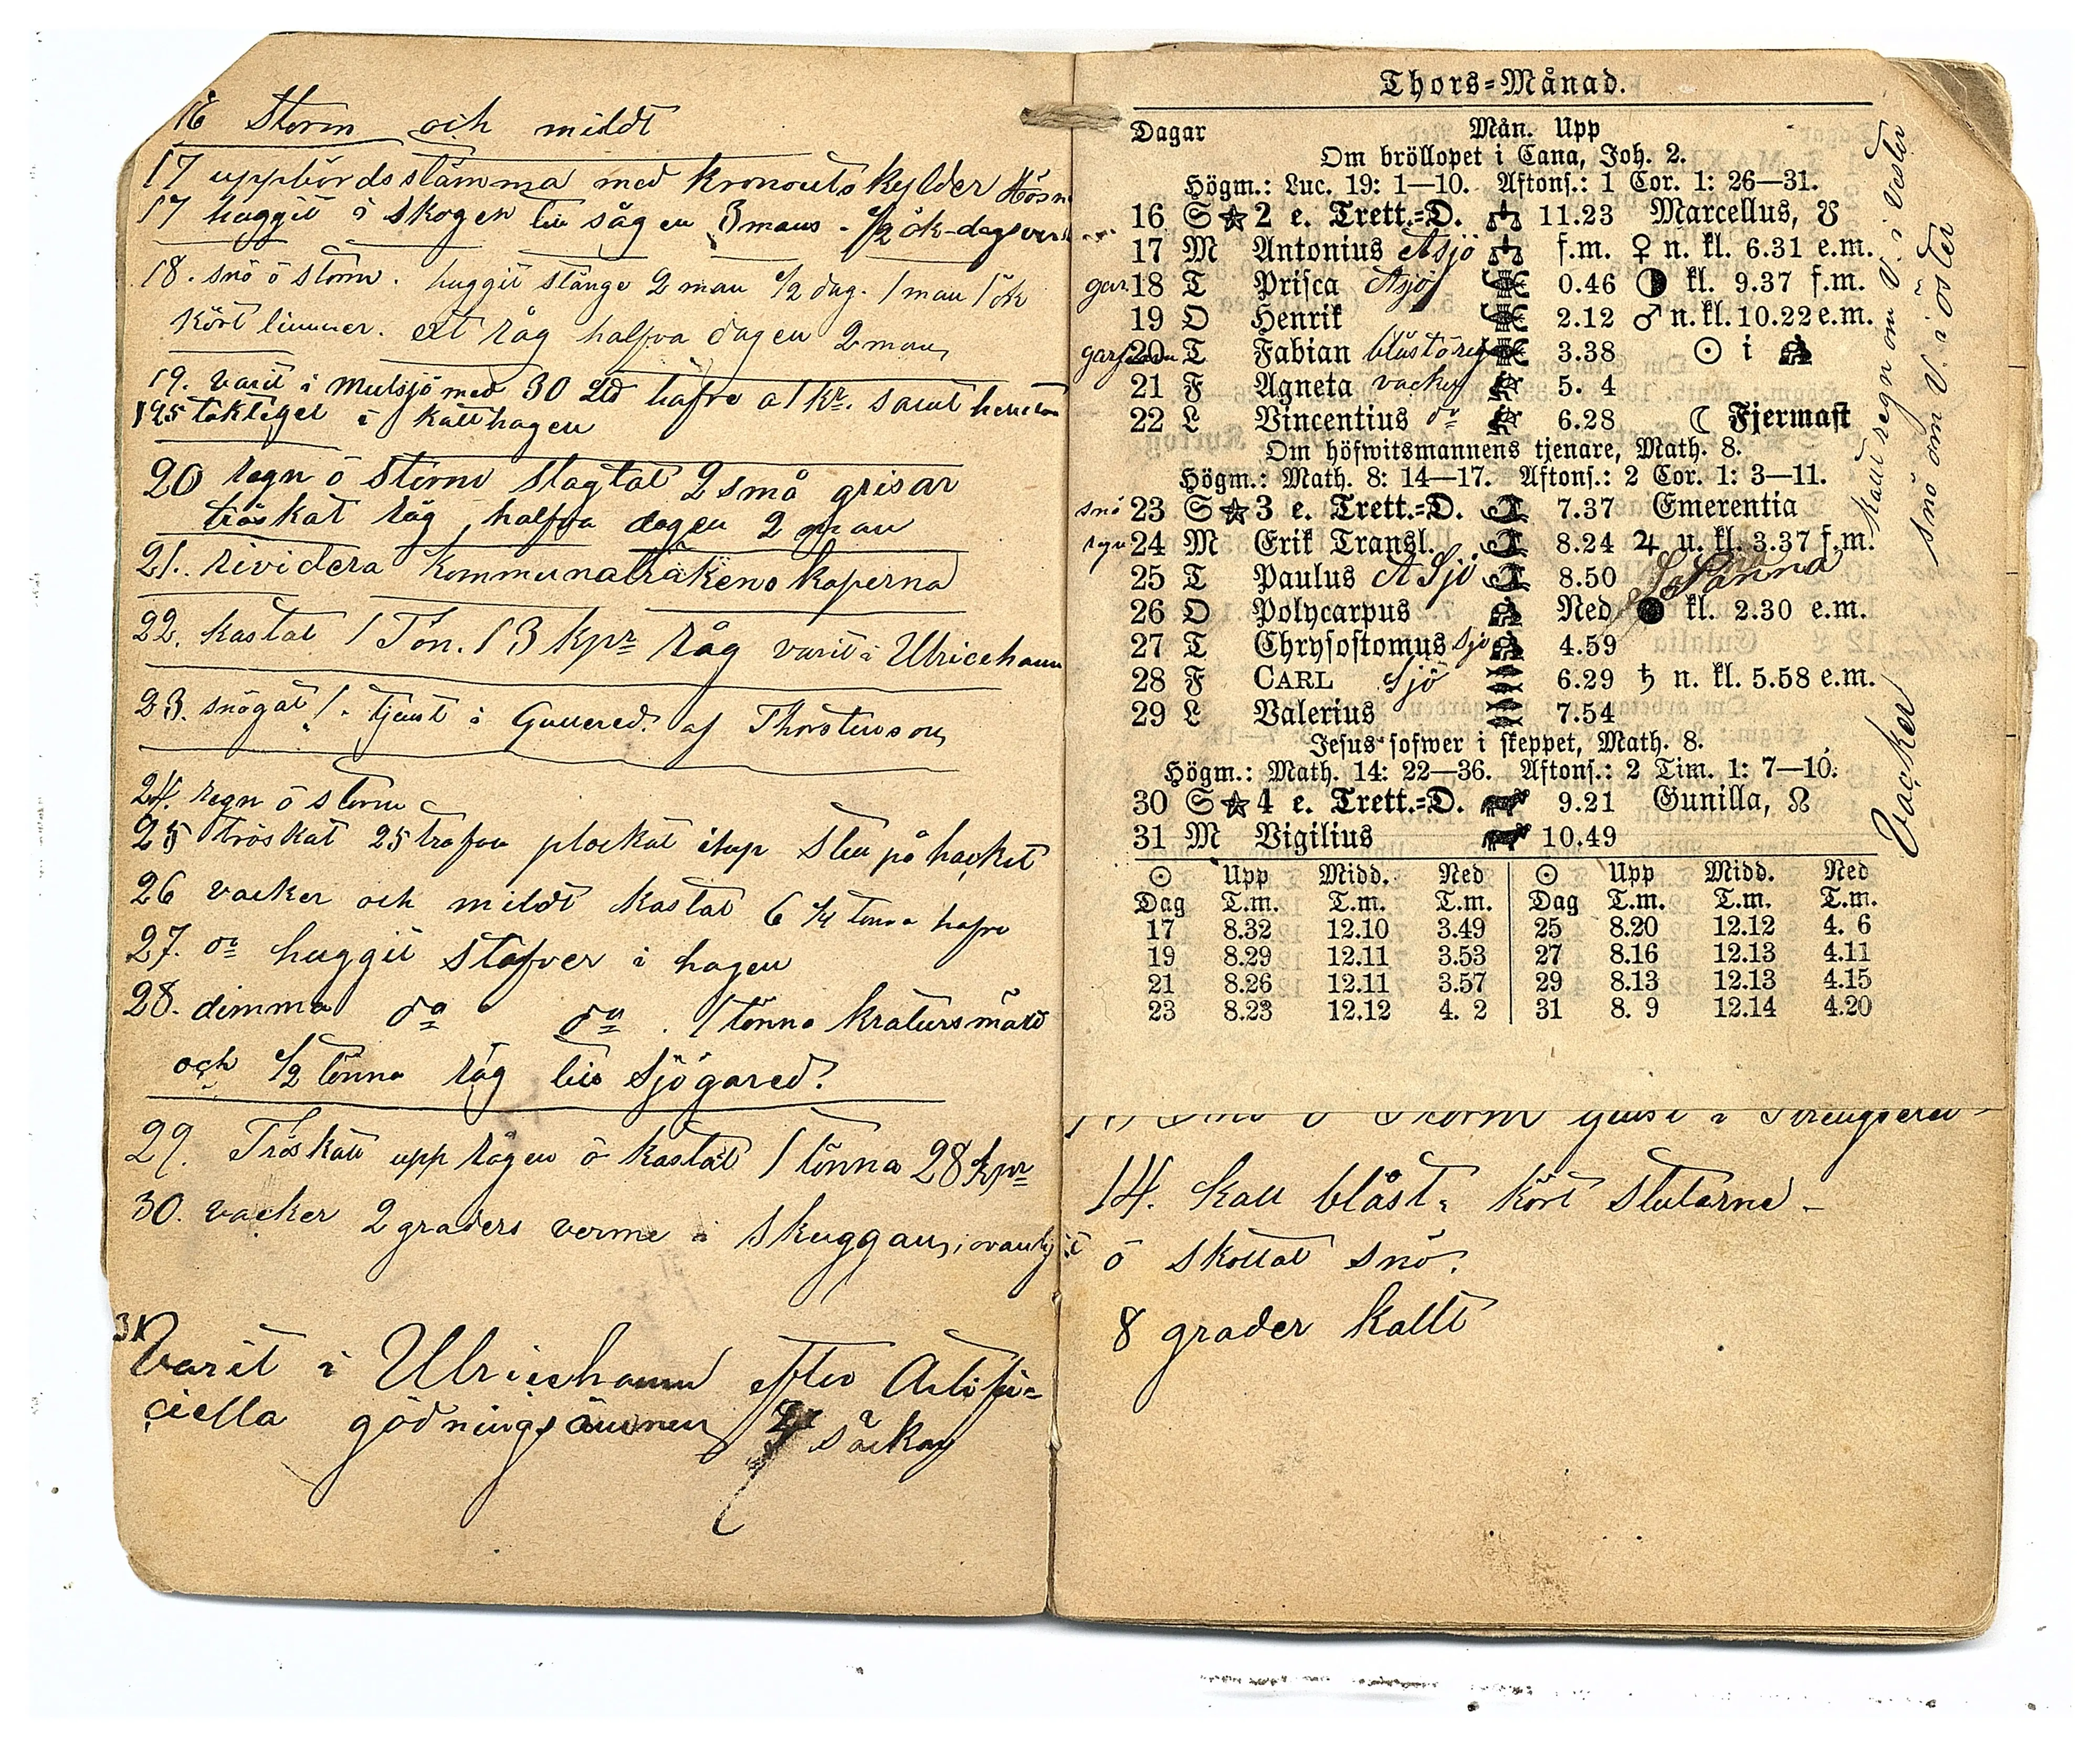 16 Storm och mildt
17 uppbördsstämma med kronoutskylder
17 huggit i skogen till sågen 3 mans - 1/2 ök-dagsverk
18. snö ö storm. huggit stänge 2 man 1/2 dag. 1 man 1 ök
kört timmer. ett råg halfva dagen 2 man
19. varit i Mulsjö med 30 Lld hafre a 1 kr. samt
195 taktegel i Katthagen
20 regn ö storm slagtat 2 små grisar
tröskat råg halfva dagen 2 man
21. rividera kommunalräkenskaperna
22. kastat 1 Tn. 13 kpr råg varit i Ulricehamn
23. snögat 1. tjenst i Gullered af Thorstenson
24. regn ö storm
25 tröskat 25 trafva plockat på hacket
26 vacker och mildt kastat 6 1/4 tunna hafre
27. do huggit Stafver i hagen
28. dimma do do. 1 tönna kratursmäld
och 1/2 tönna råg till Sjögared.
29. Tröskat upp rågen ö kastat 1 tönna 28 kpr
30. vacker 2 graders verme i skuggan, ovanligt
31 Varit i Ulricehamn efter Artifi=
ciella gödningsämnen säckar
Thors=Månad.
Dagar Mån. Upp
Om bröllopet i Cana, Joh. 2.
Högm.: Luc. 19: 1—10. Aftons.: 1 Cor. 1: 26—31.
16 S ★ 2 e. Trett.=D. ♎ 11.23 Marcellus, ☋
17 M Antonius Asjö ♎ f.m. ♀ n. kl. 6.31 e.m.
gar 18 T Prisca Asjö 0.46 ◑ kl. 9.37 f.m.
19 O Henrik 2.12 ♂ n. kl. 10.22 e.m.
20 T Fabian 3.38 ☉ i
21 F Agneta vacker 5. 4
22 L Vincentius do 6.28 ☾ Fjermast
Om höfwitsmannens tjenare, Math. 8.
Högm.: Math. 8: 14—17. Aftons.: 2 Cor. 1: 3—11.
snö 23 S ★ 3 e. Trett.=D. 7.37 Emerentia
24 M Erik Transl. 8.24 ♃ u. kl. 3.37 f.m.
25 T Paulus A Sjö 8.50
26 O Polycarpus Ned ● kl. 2.30 e.m.
27 T Chrysostomus Sjö 4.59
28 F CARL Sjö 6.29 ♄ n. kl. 5.58 e.m.
29 L Valerius 7.54
Jesus sofwer i skeppet, Math. 8.
Högm.: Math. 14: 22—36. Aftons.: 2 Tim. 1: 7—10.
30 S ★ 4 e. Trett.=D. 9.21 Gunilla, ☊
31 M Vigilius 10.49
☉ Upp Midd. Ned ☉ Upp Midd. Ned
Dag T.m. T.m. T.m. Dag T.m. T.m. T.m.
17 8.32 12.10 3.49 25 8.20 12.12 4. 6
19 8.29 12.11 3.53 27 8.16 12.13 4.11
21 8.26 12.11 3.57 29 8.13 12.13 4.15
23 8.23 12.12 4. 2 31 8. 9 12.14 4.20
kall regn om V. i vester
snö om V. i öster
Vacker
14. kall blåst, kört Stutarne -
ö skottat snö.
8 grader kallt